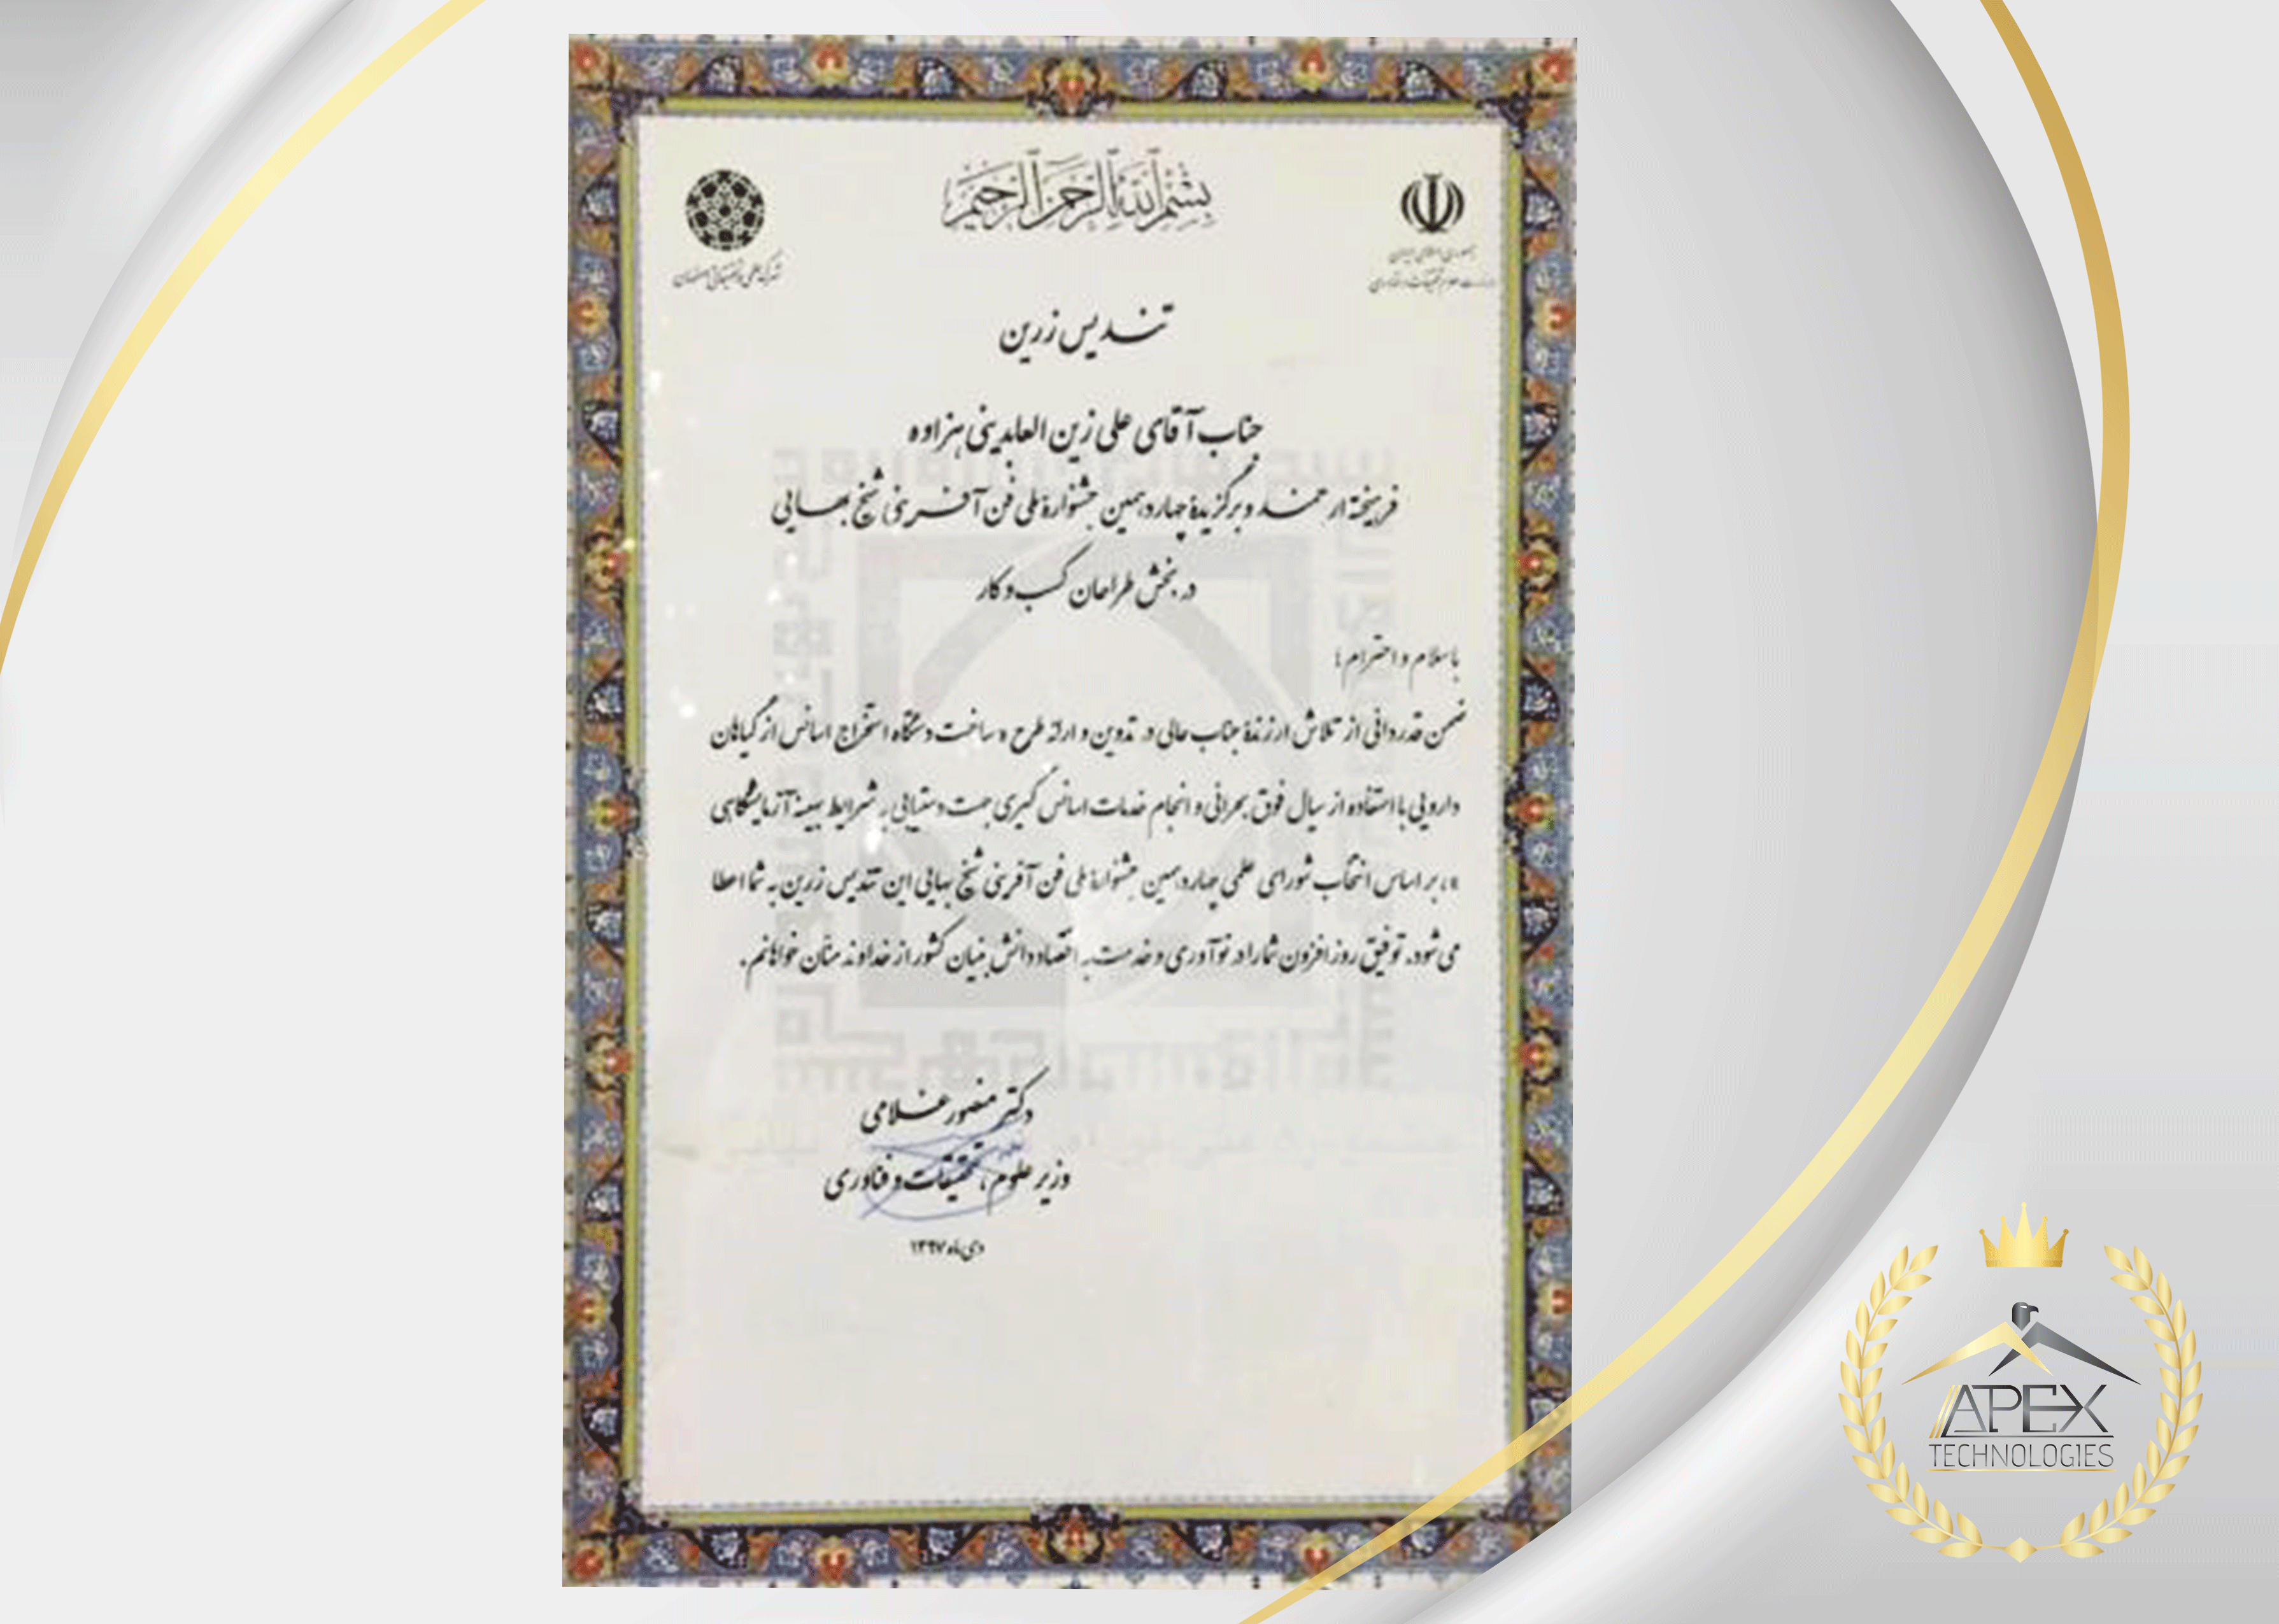 بسم الله الرحمن الرحیم
جمهوری اسلامی ایران
وزارت علوم، تحقیقات و فناوری
شهرک علمی و تحقیقاتی اصفهان
تندیس زرین
جناب آقای علی زین العابدینی هزاوه
فرهیخته ارجمند و برگزیدهٔ چهاردهمین جشنوارهٔ ملی فن آفرینی شیخ بهایی
در بخش طراحان کسب و کار
با سلام و احترام؛
ضمن قدردانی از تلاش ارزندهٔ جناب عالی در تدوین و ارائه طرح « ساخت دستگاه استخراج اسانس از گیاهان
دارویی با استفاده از سیال فوق بحرانی و انجام خدمات اسانس گیری جهت دستیابی به شرایط بهینه آزمایشگاهی
»، بر اساس انتخاب شورای علمی چهاردهمین جشنوارهٔ ملی فن آفرینی شیخ بهایی این تندیس زرین به شما اعطا
می شود. توفیق روز افزون شما را در نوآوری و خدمت به اقتصاد دانش بنیان کشور از خداوند منان خواهانم.
دکتر منصور غلامی
وزیر علوم، تحقیقات و فناوری
دی ماه ۱۳۹۷
APEX
TECHNOLOGIES